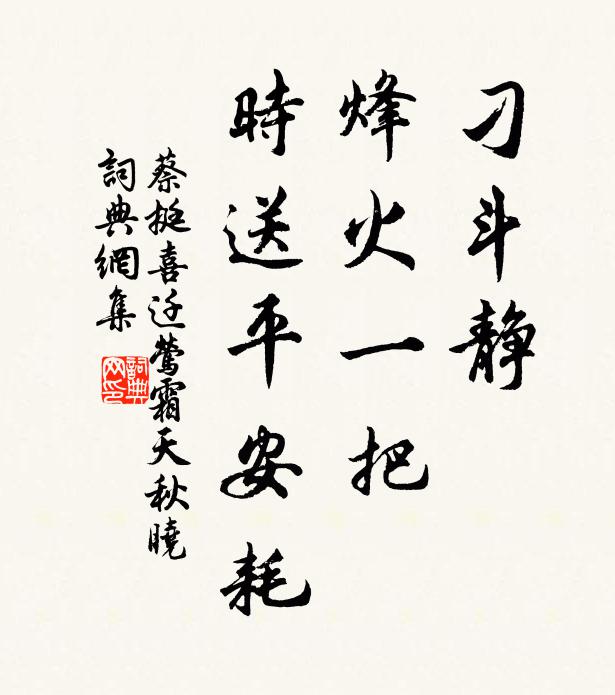 刁斗静
烽火一把
時送平安耗
蔡挺喜迁鶯霜天秋曉
詞典網集
詞典
网印